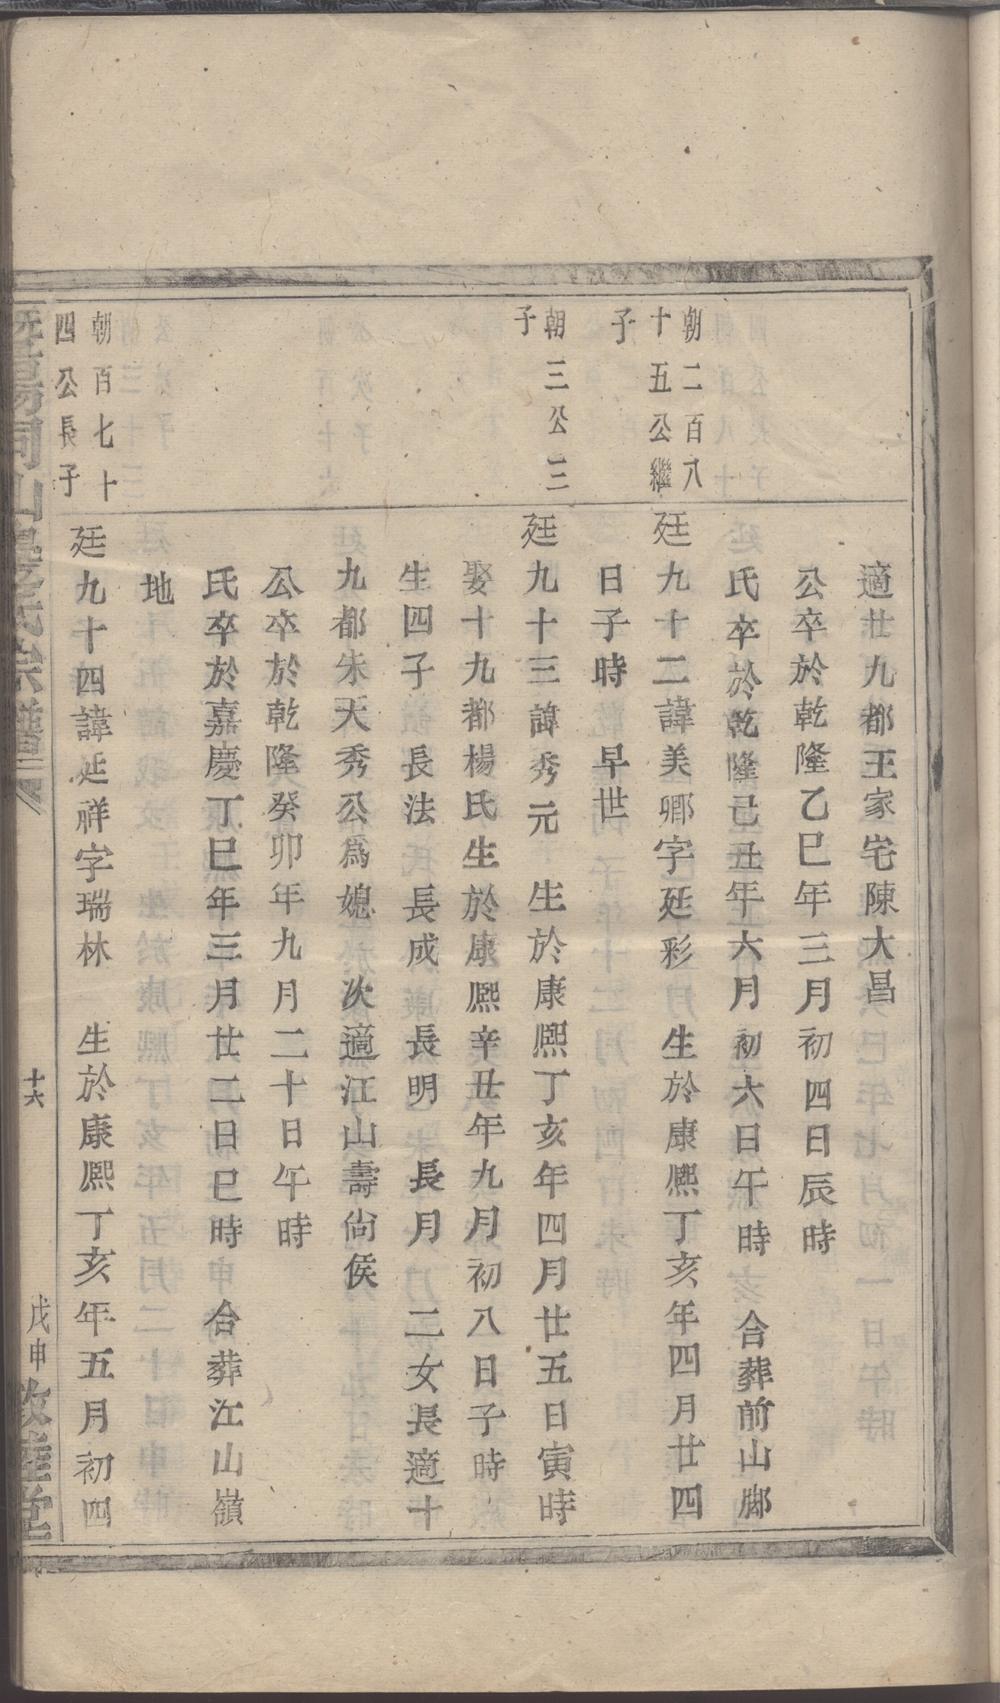 適廿九都王家宅陳大昌
公卒於乾隆乙巳年三月初四日辰時
氏卒於乾隆己丑年六月初六日午時　合葬前山鄉
朝二百八
十五公繼
子
廷九十二諱美卿字廷彩　生於康熙丁亥年四月廿四
日子時　早世
朝三公三
子
廷九十三諱秀元　生於康熙丁亥年四月廿五日寅時
娶十九都楊氏生於康熙辛丑年九月初八日子時
生四子　長法　長成　長明　長月　二女長適十
九都朱天秀公爲媳　次適江山壽尙侯
公卒於乾隆癸卯年九月二十日午時
氏卒於嘉慶丁巳年三月廿二日巳時　合葬江山嶺
地
朝百七十
四公長子
廷九十四諱廷祥字瑞林　生於康熙丁亥年五月初四
暨陽同山邊氏宗譜
十六
戊申
敦睦堂